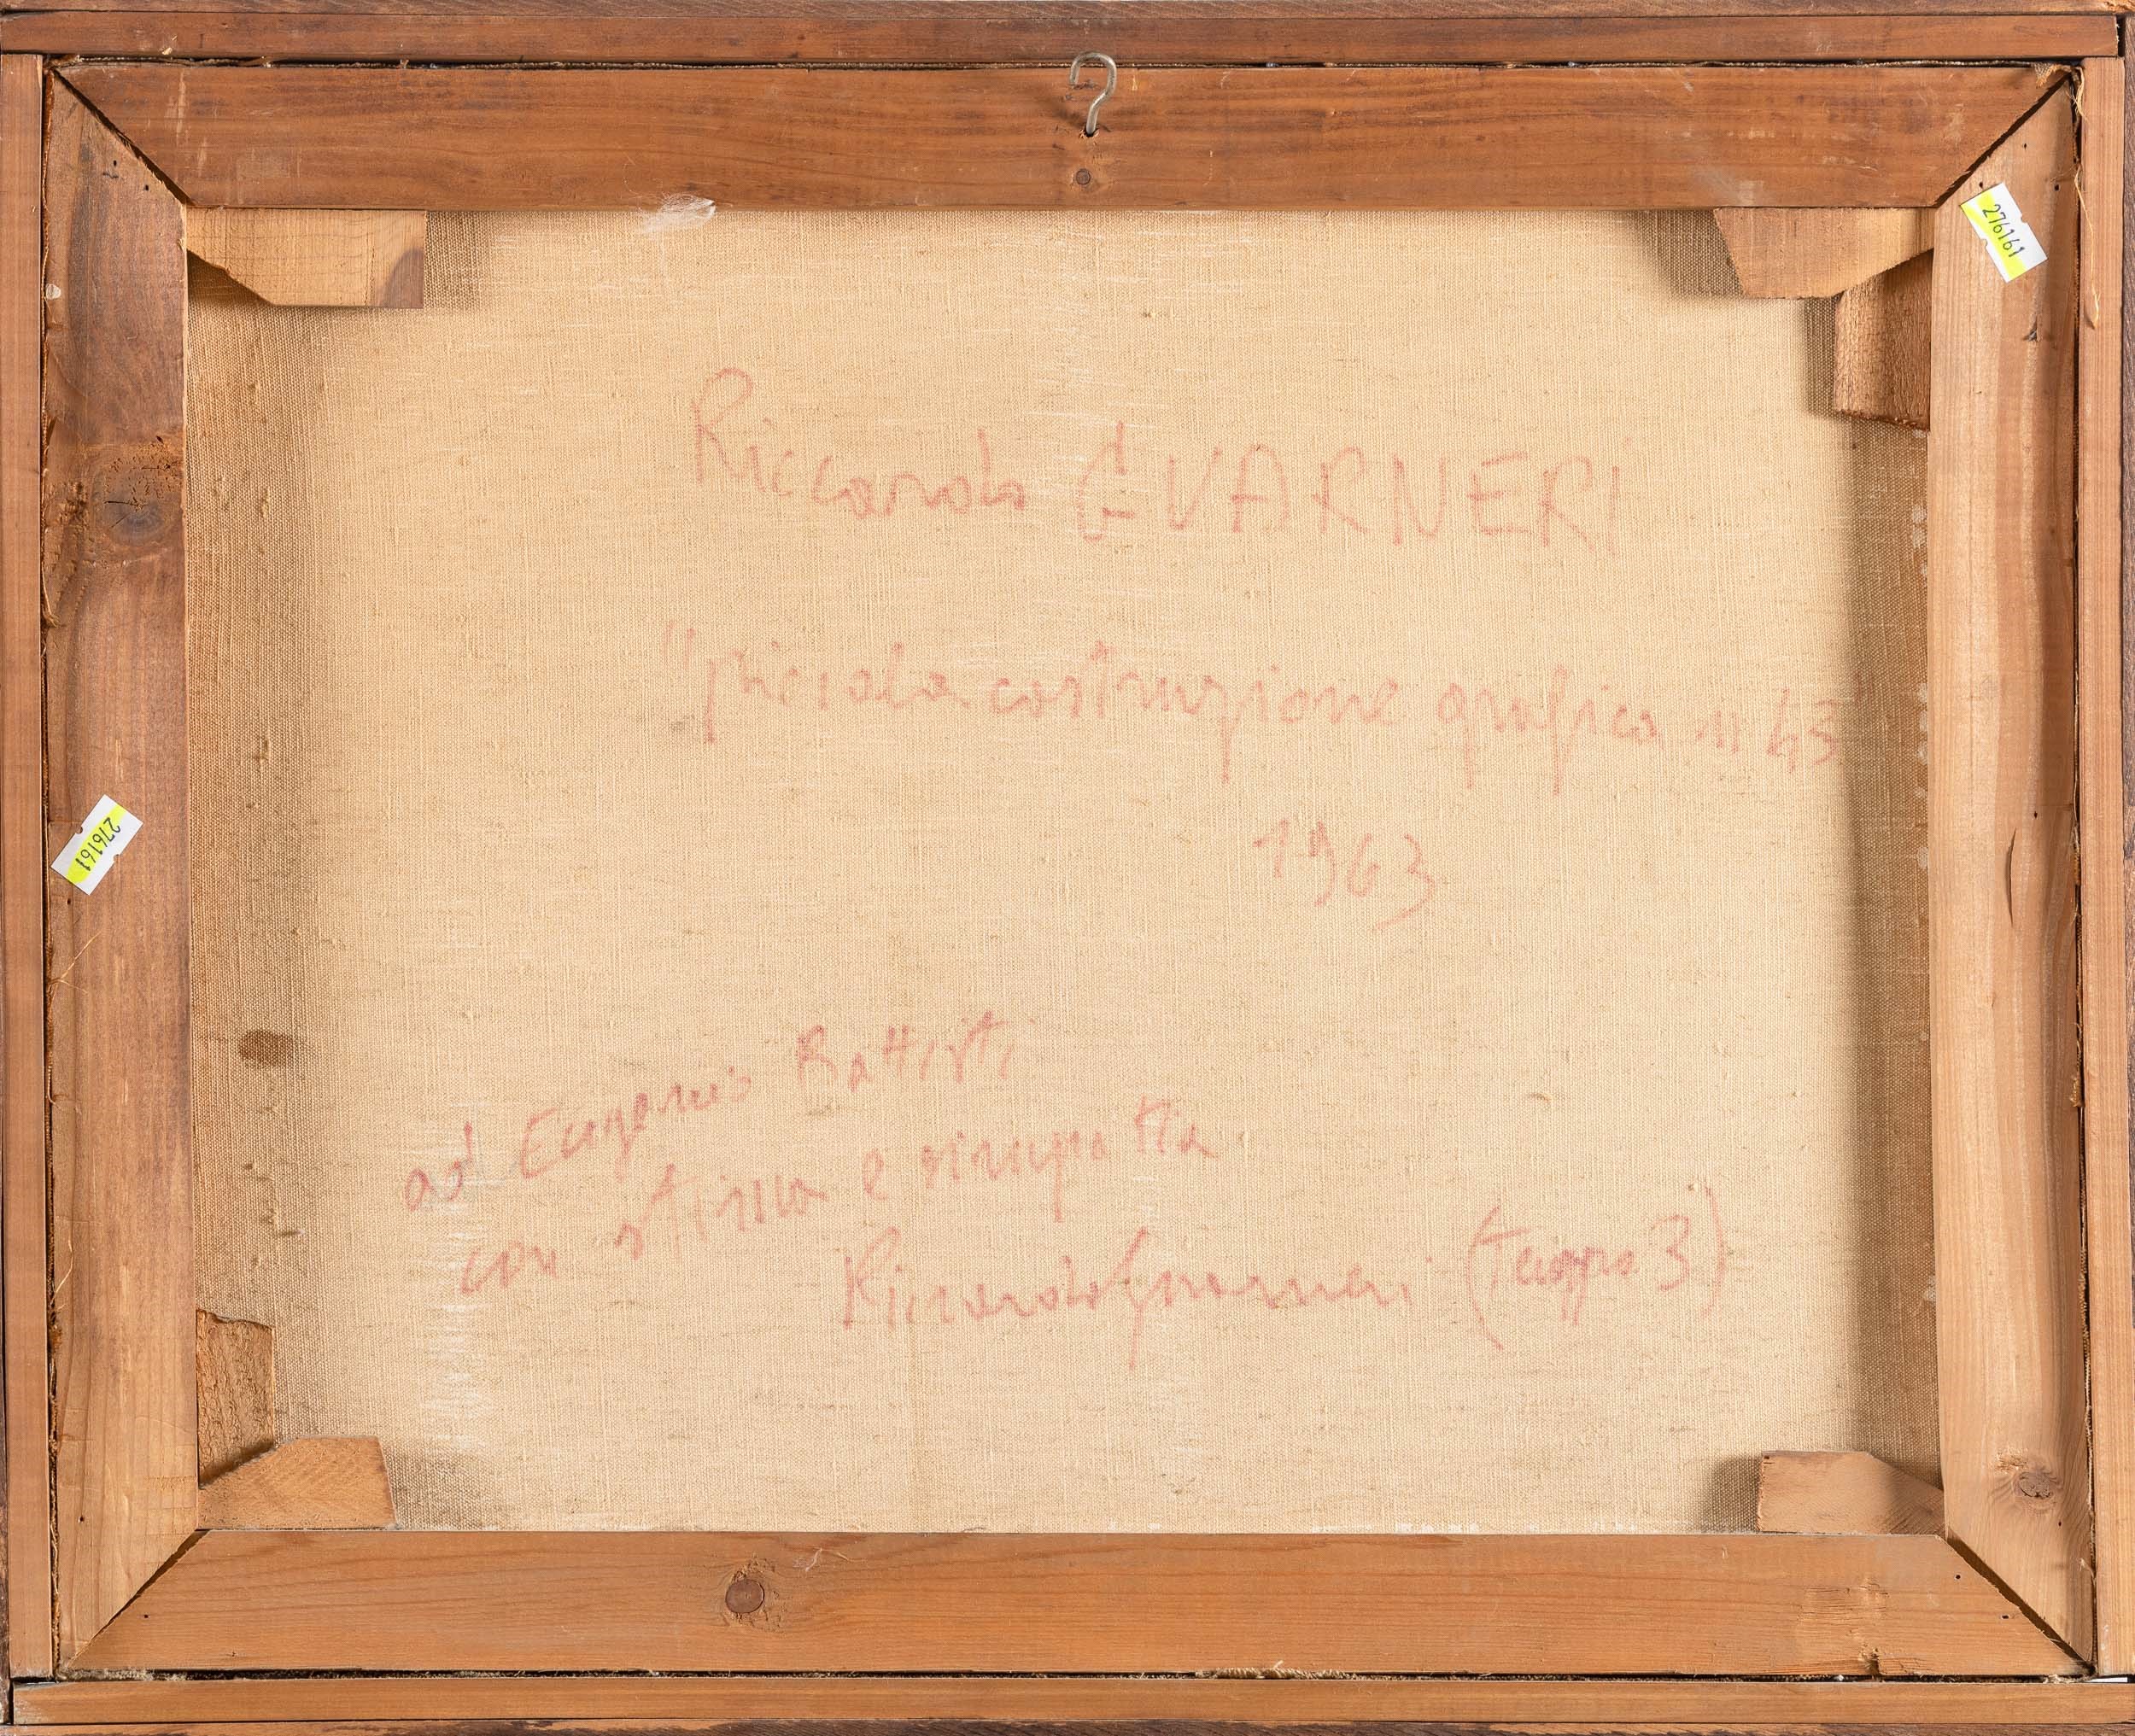 276161
Riccardo GUARNERI
"piccola costruzione grafica n 45
1963
276161
ad Eugenio Battisti
con stima e simpatia
Riccardo Guarneri (Tempo 3)